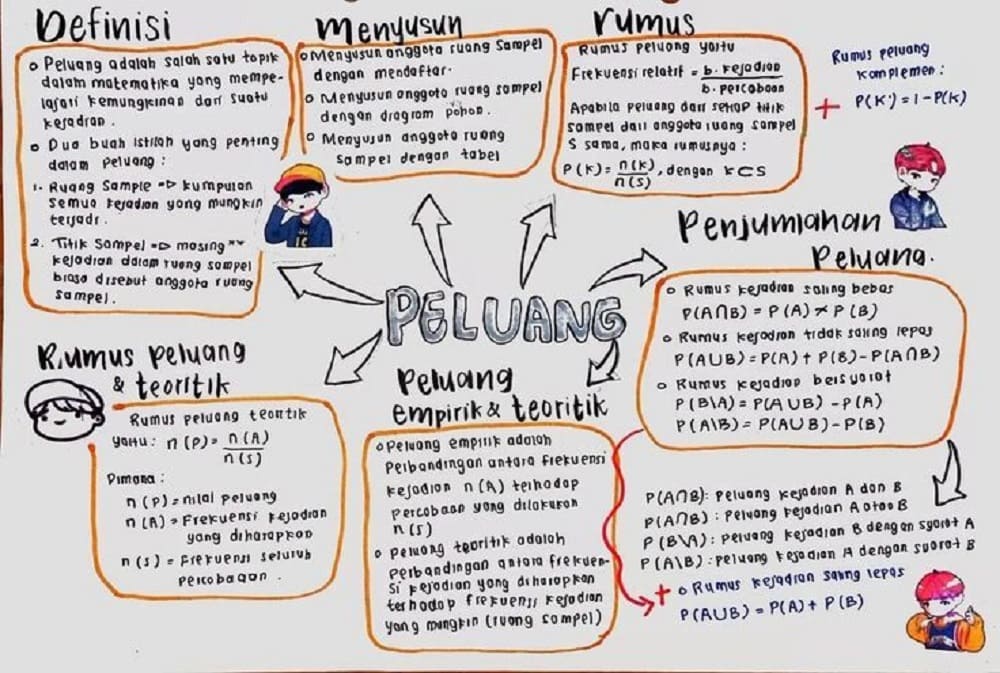 Definisi
o Peluang adalah salah satu topik
dalam matematika yang mempe-
lajari kemungkinan dari suatu
kejadian.
o Dua buah istilah yang penting
dalam peluang :
1. Ruang Sample => kumpulan
semua kejadian yang mungkin
terjadi.
2. Titik Sampel => masing"
kejadian dalam ruang sampel
biasa disebut anggota ruang
sampel.
Menyusun
o Menyusun anggota ruang sampel
dengan mendaftar.
o Menyusun anggota ruang sampel
dengan diagram pohon.
o Menyusun anggota ruang
sampel dengan tabel
rumus
Rumus peluang yaitu
Frekuensi relatif = b. kejadian / b. percobaan
Apabila peluang dari setiap titik
sampel dari anggota ruang sampel
S sama, maka rumusnya :
P(K) = n(K) / n(S), dengan K⊂S
+
Rumus peluang
komplemen :
P(K') = 1 - P(K)
PELUANG
Penjumlahan
Peluang.
o Rumus kejadian saling bebas
P(A∩B) = P(A) × P(B)
o Rumus kejadian tidak saling lepas
P(A∪B) = P(A) + P(B) - P(A∩B)
o Rumus kejadian bersyarat
P(B\A) = P(A∪B) - P(A)
P(A\B) = P(A∪B) - P(B)
P(A∩B) : Peluang kejadian A dan B
P(A∩B) : Peluang kejadian A atau B
P(B\A) : Peluang kejadian B dengan syarat A
P(A\B) : Peluang kejadian A dengan syarat B
+ o Rumus kejadian saling lepas
P(A∪B) = P(A) + P(B)
Rumus peluang
& teoritik
Rumus peluang teoritik
yaitu : n(P) = n(A) / n(S)
Dimana :
n(P) = nilai peluang
n(A) = Frekuensi kejadian
yang diharapkan
n(S) = Frekuensi seluruh
percobaan .
Peluang
empirik & teoritik
o Peluang empirik adalah
Perbandingan antara frekuensi
kejadian n(A) terhadap
percobaan yang dilakukan
n(S)
o Peluang teoritik adalah
Perbandingan antara frekuen-
si kejadian yang diharapkan
terhadap frekuensi kejadian
yang mungkin (ruang sampel)